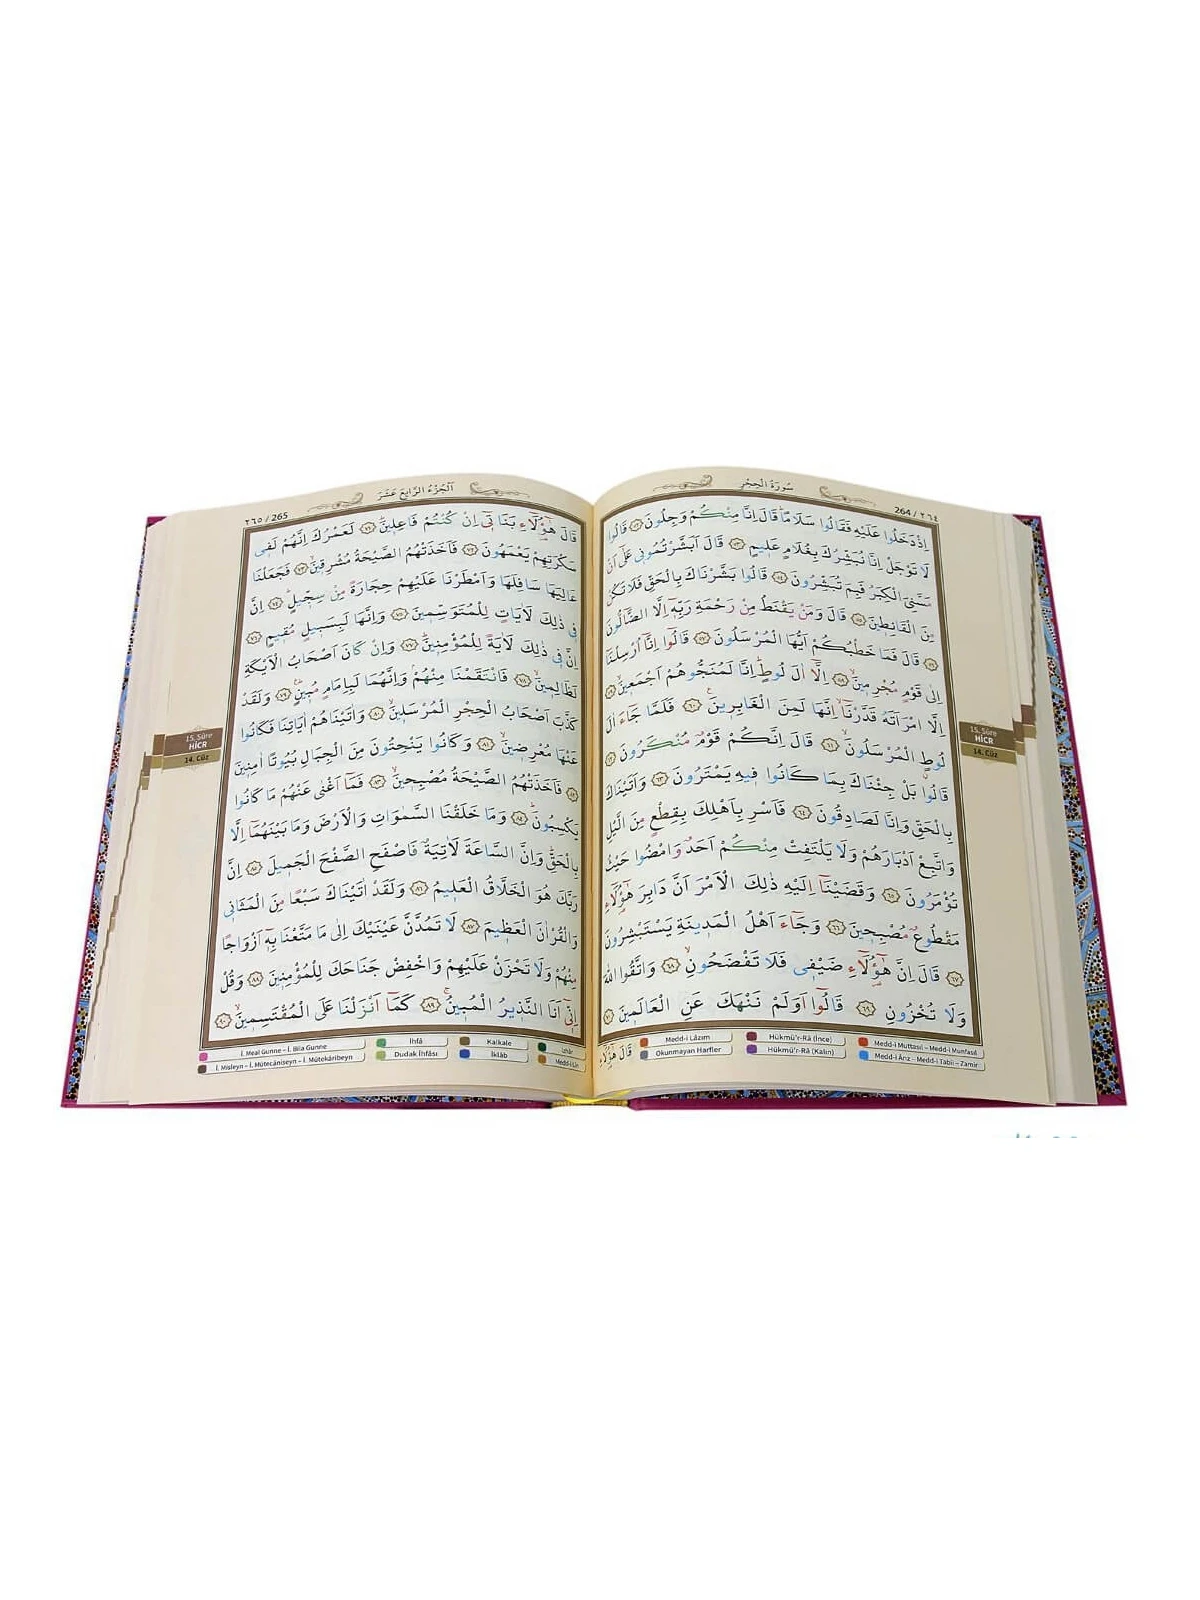 سُورَةُ الْحِجْرِ
264 / ٢٦٤
اِذْ دَخَلُوا عَلَيْهِ فَقَالُوا سَلَامًاۜ قَالَ اِنَّا مِنْكُمْ وَجِلُونَ ﴿٥٢﴾ قَالُوا
لَا تَوْجَلْ اِنَّا نُبَشِّرُكَ بِغُلَامٍ عَلٖيمٍ ﴿٥٣﴾ قَالَ اَبَشَّرْتُمُونٖى عَلٰٓى اَنْ
مَسَّنِىَ الْكِبَرُ فَبِمَ تُبَشِّرُونَ ﴿٥٤﴾ قَالُوا بَشَّرْنَاكَ بِالْحَقِّ فَلَا تَكُنْ
مِنَ الْقَانِطٖينَ ﴿٥٥﴾ قَالَ وَمَنْ يَقْنَطُ مِنْ رَحْمَةِ رَبِّهٖٓ اِلَّا الضَّٓالُّونَ
﴿٥٦﴾ قَالَ فَمَا خَطْبُكُمْ اَيُّهَا الْمُرْسَلُونَ ﴿٥٧﴾ قَالُٓوا اِنَّٓا اُرْسِلْنَٓا
اِلٰى قَوْمٍ مُجْرِمٖينَۙ ﴿٥٨﴾ اِلَّٓا اٰلَ لُوطٍۜ اِنَّا لَمُنَجُّوهُمْ اَجْمَعٖينَۙ ﴿٥٩﴾
اِلَّا امْرَاَتَهُ قَدَّرْنَٓاۙ اِنَّهَا لَمِنَ الْغَابِرٖينَ۟ ﴿٦٠﴾ فَلَمَّا جَٓاءَ اٰلَ
لُوطٍ الْمُرْسَلُونَۙ ﴿٦١﴾ قَالَ اِنَّكُمْ قَوْمٌ مُنْكَرُونَ ﴿٦٢﴾
قَالُوا بَلْ جِئْنَاكَ بِمَا كَانُوا فٖيهِ يَمْتَرُونَ ﴿٦٣﴾ وَاَتَيْنَاكَ
بِالْحَقِّ وَاِنَّا لَصَادِقُونَ ﴿٦٤﴾ فَاَسْرِ بِاَهْلِكَ بِقِطْعٍ مِنَ الَّيْلِ
وَاتَّبِعْ اَدْبَارَهُمْ وَلَا يَلْتَفِتْ مِنْكُمْ اَحَدٌ وَامْضُوا حَيْثُ
تُؤْمَرُونَ ﴿٦٥﴾ وَقَضَيْنَٓا اِلَيْهِ ذٰلِكَ الْاَمْرَ اَنَّ دَابِرَ هٰٓؤُ۬لَٓاءِ
مَقْطُوعٌ مُصْبِحٖينَ ﴿٦٦﴾ وَجَٓاءَ اَهْلُ الْمَدٖينَةِ يَسْتَبْشِرُونَ
﴿٦٧﴾ قَالَ اِنَّ هٰٓؤُ۬لَٓاءِ ضَيْفٖى فَلَا تَفْضَحُونِۙ ﴿٦٨﴾ وَاتَّقُوا اللّٰهَ
وَلَا تُخْزُونِ ﴿٦٩﴾ قَالُٓوا اَوَلَمْ نَنْهَكَ عَنِ الْعَالَمٖينَ ﴿٧٠﴾
قَالَ هٰٓؤُ۬لَٓاءِ
15. Sûre
HİCR
14. Cüz
Medd-i Lâzım
Hükmü'r-Râ (İnce)
Medd-i Muttasıl – Medd-i Munfasıl
Okunmayan Harfler
Hükmü'r-Râ (Kalın)
Medd-i Ârız – Medd-i Tabiî – Zamir
اَلْجُزْءُ الرَّابِعَ عَشَرَ
٢٦٥ / 265
قَالَ هٰٓؤُ۬لَٓاءِ بَنَاتٖٓى اِنْ كُنْتُمْ فَاعِلٖينَۜ ﴿٧١﴾ لَعَمْرُكَ اِنَّهُمْ لَفٖى
سَكْرَتِهِمْ يَعْمَهُونَ ﴿٧٢﴾ فَاَخَذَتْهُمُ الصَّيْحَةُ مُشْرِقٖينَۙ ﴿٧٣﴾ فَجَعَلْنَا
عَالِيَهَا سَافِلَهَا وَاَمْطَرْنَا عَلَيْهِمْ حِجَارَةً مِنْ سِجّٖيلٍۜ ﴿٧٤﴾ اِنَّ
فٖى ذٰلِكَ لَاٰيَاتٍ لِلْمُتَوَسِّمٖينَ ﴿٧٥﴾ وَاِنَّهَا لَبِسَبٖيلٍ مُقٖيمٍ ﴿٧٦﴾
اِنَّ فٖى ذٰلِكَ لَاٰيَةً لِلْمُؤْمِنٖينَۜ ﴿٧٧﴾ وَاِنْ كَانَ اَصْحَابُ الْاَيْكَةِ
لَظَالِمٖينَۙ ﴿٧٨﴾ فَانْتَقَمْنَا مِنْهُمْۢ وَاِنَّهُمَا لَبِاِمَامٍ مُبٖينٍۜ۟ ﴿٧٩﴾ وَلَقَدْ
كَذَّبَ اَصْحَابُ الْحِجْرِ الْمُرْسَلٖينَۙ ﴿٨٠﴾ وَاٰتَيْنَاهُمْ اٰيَاتِنَا فَكَانُوا
عَنْهَا مُعْرِضٖينَۙ ﴿٨١﴾ وَكَانُوا يَنْحِتُونَ مِنَ الْجِبَالِ بُيُوتًا اٰمِنٖينَ
﴿٨٢﴾ فَاَخَذَتْهُمُ الصَّيْحَةُ مُصْبِحٖينَۙ ﴿٨٣﴾ فَمَٓا اَغْنٰى عَنْهُمْ مَا كَانُوا
يَكْسِبُونَۜ ﴿٨٤﴾ وَمَا خَلَقْنَا السَّمٰوَاتِ وَالْاَرْضَ وَمَا بَيْنَهُمَٓا اِلَّا
بِالْحَقِّۜ وَاِنَّ السَّاعَةَ لَاٰتِيَةٌ فَاصْفَحِ الصَّفْحَ الْجَمٖيلَ ﴿٨٥﴾ اِنَّ
رَبَّكَ هُوَ الْخَلَّاقُ الْعَلٖيمُ ﴿٨٦﴾ وَلَقَدْ اٰتَيْنَاكَ سَبْعًا مِنَ الْمَثَانٖى
وَالْقُرْاٰنَ الْعَظٖيمَ ﴿٨٧﴾ لَا تَمُدَّنَّ عَيْنَيْكَ اِلٰى مَا مَتَّعْنَا بِهٖٓ اَزْوَاجًا
مِنْهُمْ وَلَا تَحْزَنْ عَلَيْهِمْ وَاخْفِضْ جَنَاحَكَ لِلْمُؤْمِنٖينَ ﴿٨٨﴾ وَقُلْ
اِنّٖٓى اَنَا النَّذٖيرُ الْمُبٖينُۚ ﴿٨٩﴾ كَمَٓا اَنْزَلْنَا عَلَى الْمُقْتَسِمٖينَۙ ﴿٩٠﴾
15. Sûre
HİCR
14. Cüz
İ. Meal Gunne – İ. Bila Gunne
İhfâ
Kalkale
İzhâr
İ. Misleyn – İ. Mütecâniseyn – İ. Mütekâribeyn
Dudak İhfâsı
İklâb
Medd-i Lîn